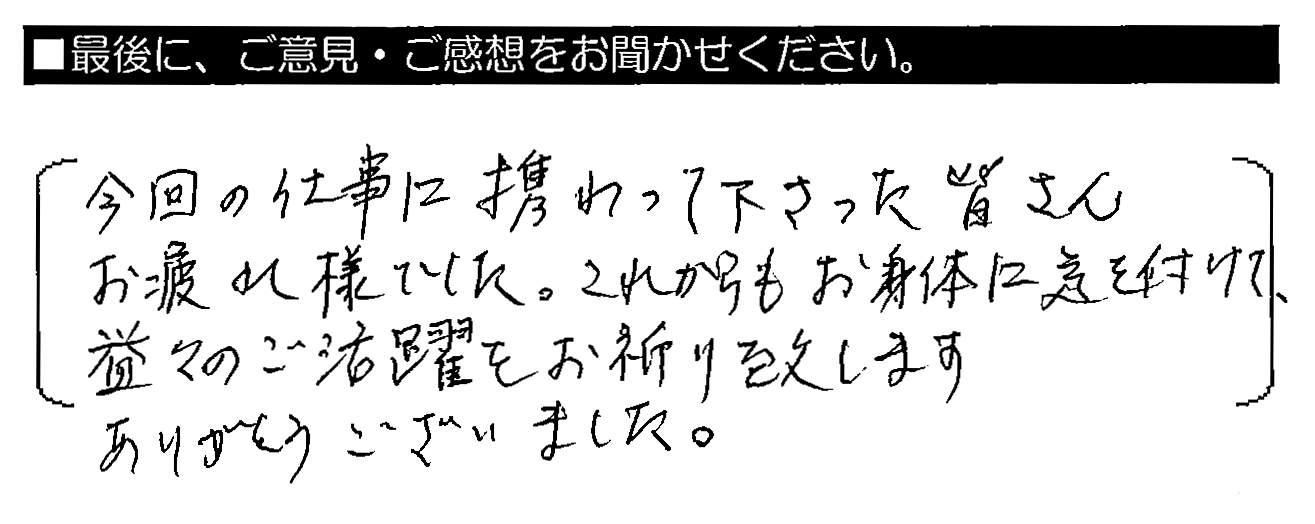 ■最後に、ご意見・ご感想をお聞かせください。
今回の仕事に携わって下さった皆さん
お疲れ様でした。これからもお身体に気を付けて、
益々のご活躍をお祈り致します
ありがとうございました。